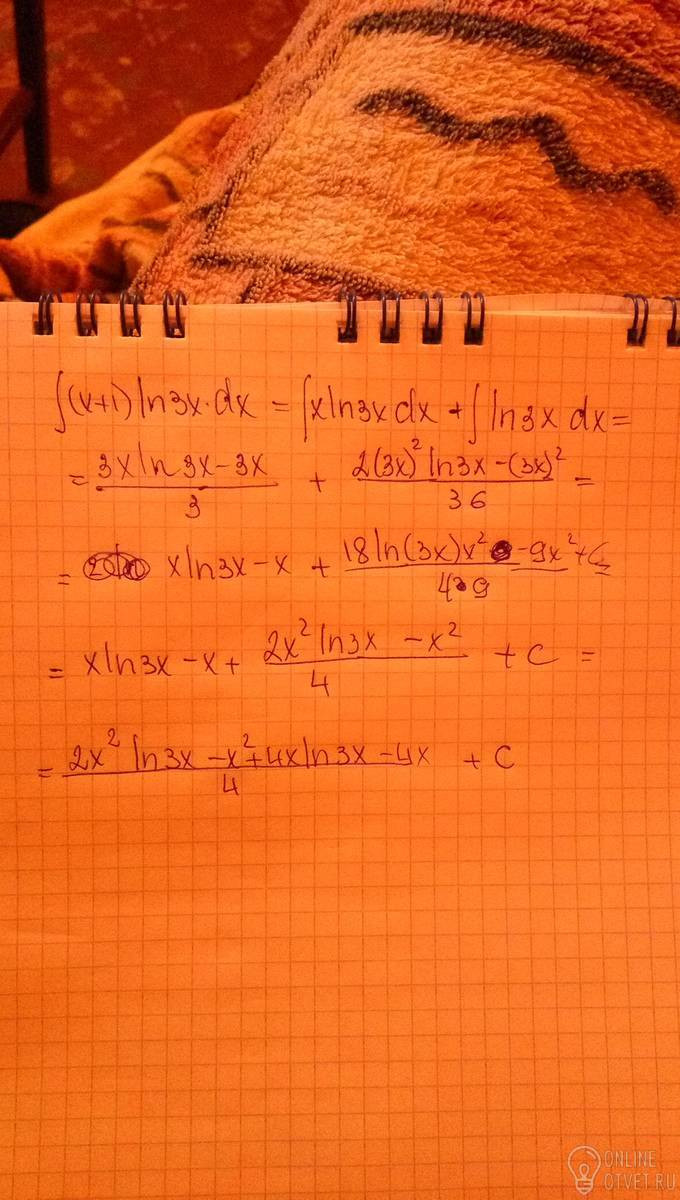 ∫(x+1)ln3x·dx = ∫xln3x dx + ∫ ln3x dx =
= (3x ln 3x - 3x)/3 + (2(3x)² ln3x - (3x)²)/36 =
= xln3x - x + (18 ln(3x)x² - 9x²)/(4·9) + C =
= xln3x - x + (2x² ln3x - x²)/4 + C =
= (2x² ln3x - x² + 4xln3x - 4x)/4 + C
ONLINE
OTVET.RU